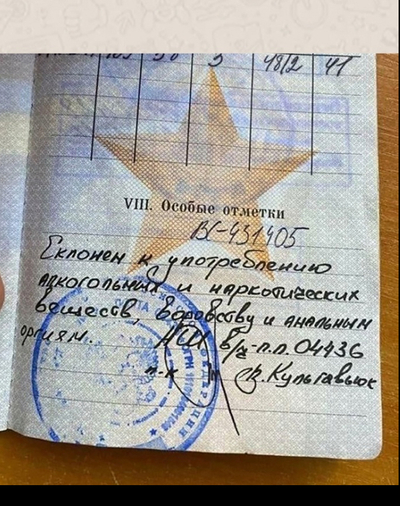 103 58 5 48/2 41
VIII. Особые отметки
ВС-431405
Склонен к употреблению
алкогольных и наркотических
веществ, воровству и анальным
оргиям. в/ч-п.п. 04436
п-к Кульгавьюк